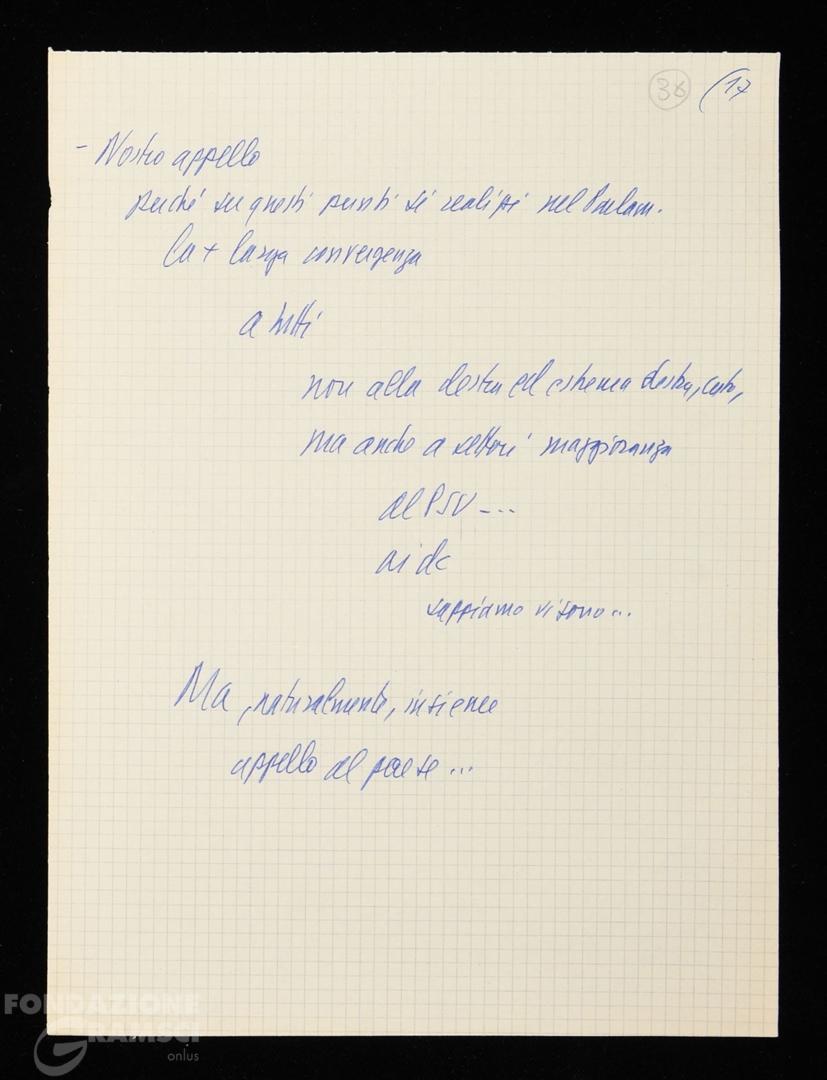 38 (17
- Nostro appello
perché su questi punti si realizzi nel Parlam.
la + larga convergenza
a tutti
non alla destra ed estrema destra, certo,
ma anche a settori maggioranza
al PSU - ...
ai dc
sappiamo vi sono ...
Ma, naturalmente, insieme
appello al paese ...
FONDAZIONE
GRAMSCI
onlus